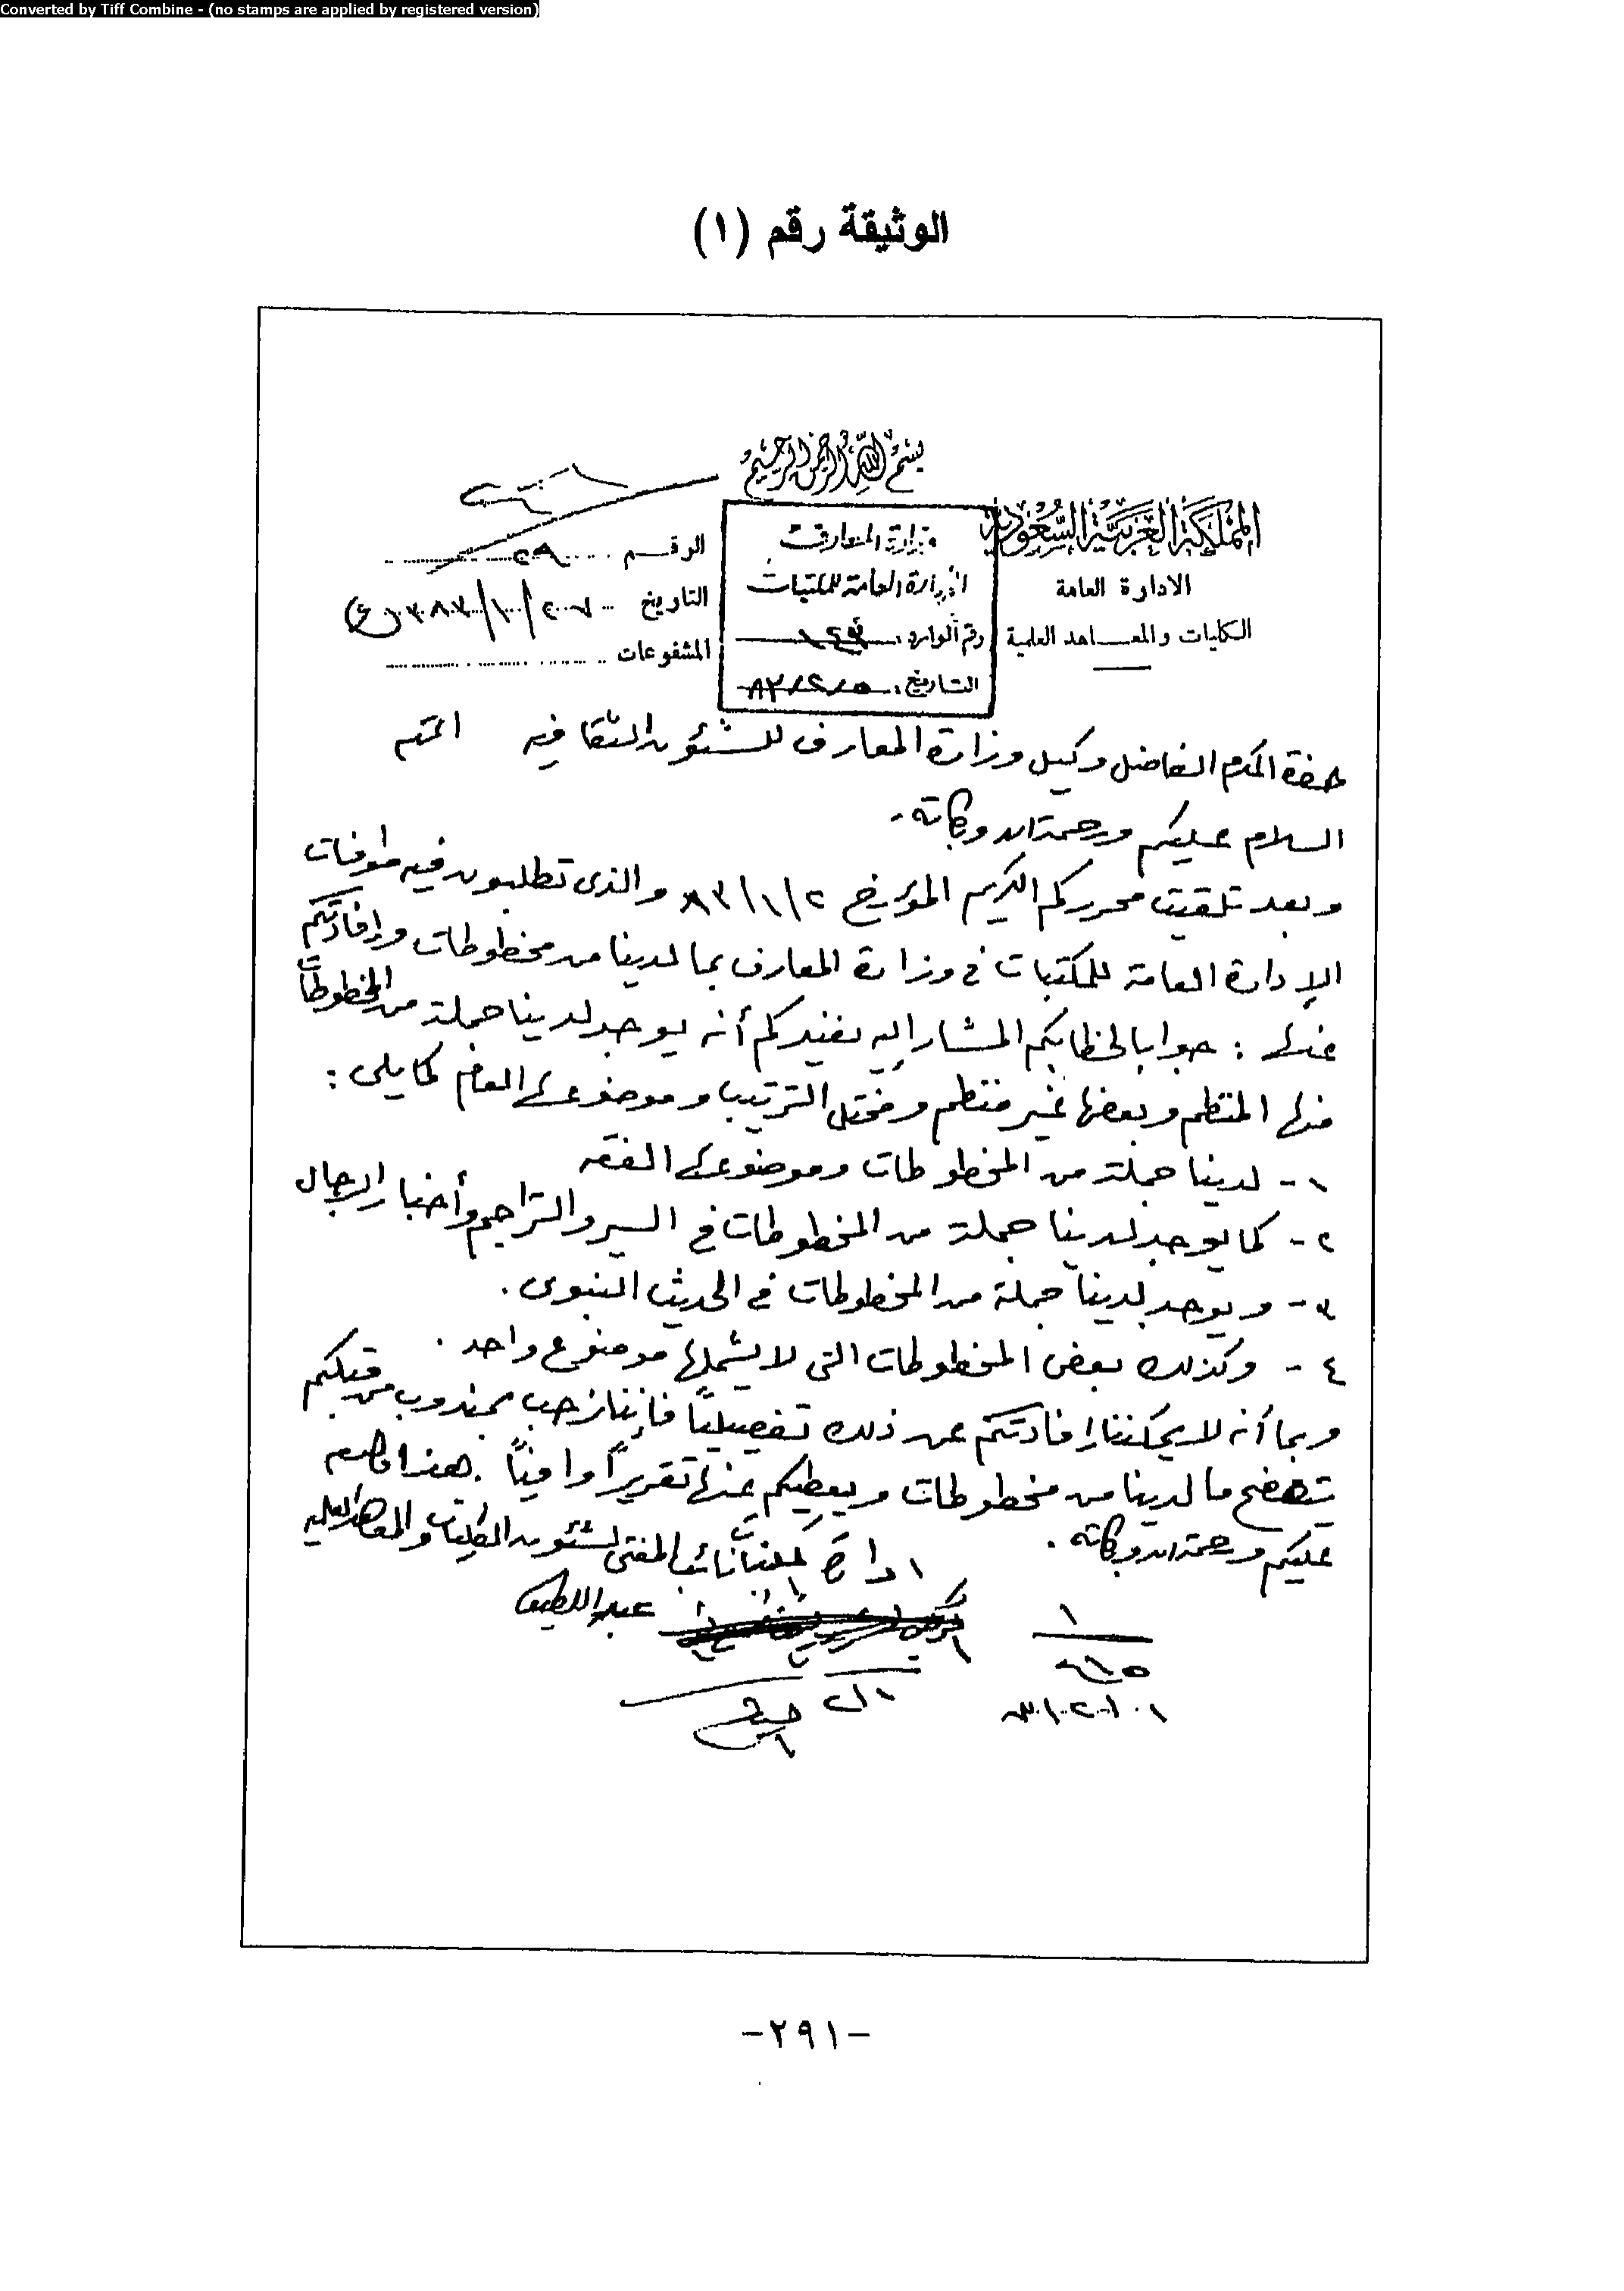 Converted by Tiff Combine - (no stamps are applied by registered version)
الوثيقة رقم (١)
بسم الله الرحمن الرحيم
المملكة العربية السعودية
الادارة العامة
الكليات والمعاهد العلمية
وزارة المعارف
الإدارة العامة للمكتبات
رقم الوارد:
التاريخ: ٨٣/٢/٥
الرقم
التاريخ
المشفوعات
حضرة المكرم الفاضل وكيل وزارة المعارف للشئون الثقافيه المحترم
السلام عليكم ورحمة الله وبركاته -
وبعد تلقيت محرركم الكريم المؤرخ ٨٣/١/٢ والذى تطلبون فيه موافات
الإدارة العامة للمكتبات في وزارة المعارف بما لدينا من مخطوطات وإفادتكم
عنها : جوابا لخطابكم المشار إليه نفيدكم أنه يوجد لدينا جملة من المخطوطات
منها المنتظم وبعضها غير منتظم ومختل الترتيب وموضوعها العام كما يلى :
١ - لدينا جملة من المخطوطات وموضوعها الفقه
٢ - كما يوجد لدينا جملة من المخطوطات في السير والتراجم وأخبار الرجال
٣ - ويوجد لدينا جملة من المخطوطات في الحديث النبوى .
٤ - وكذلك بعض المخطوطات التى لا يشملها موضوع واحد .
وبما أنه لا يمكننا إفادتكم عن ذلك تفصيلياً فإننا نرحب بمندوب من قبلكم
يتصفح ما لدينا من مخطوطات ويعطيكم عنها تقريراً وافياً . هذا والسلام
عليكم ورحمة الله وبركاته .
نائب المفتى لشئون الكليات والمعاهد العلميه
عبد اللطيف
-٢٩١-